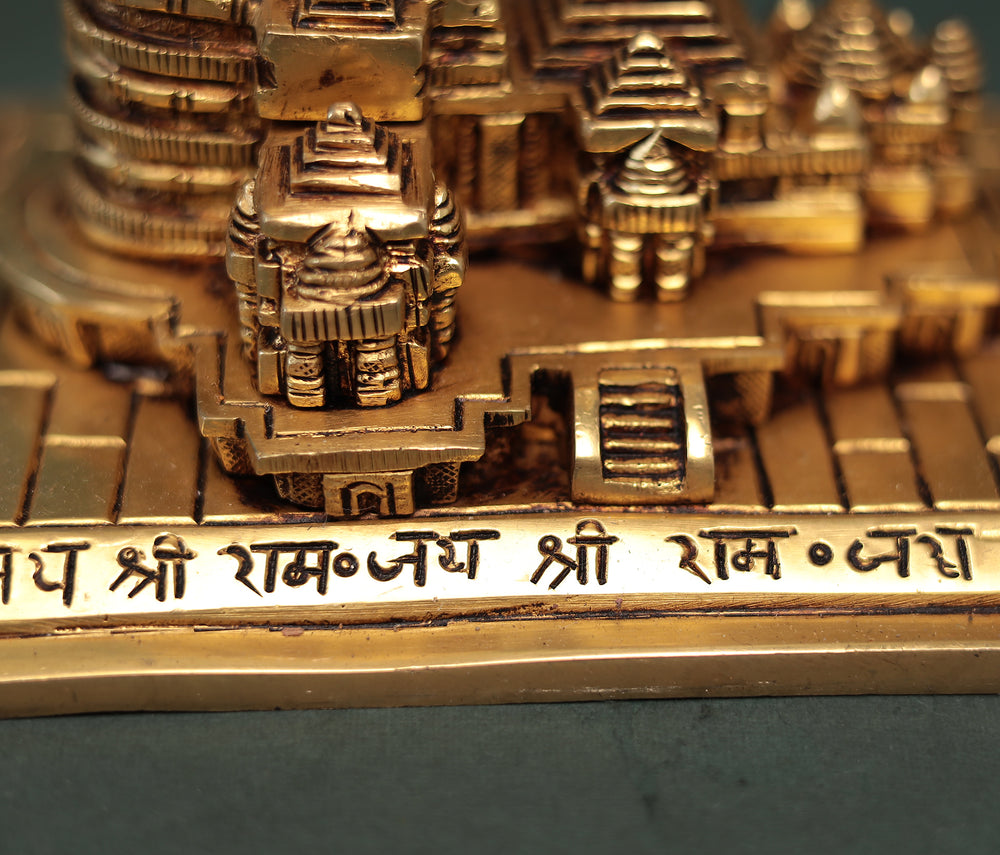 जय श्री राम • जय श्री राम • जय